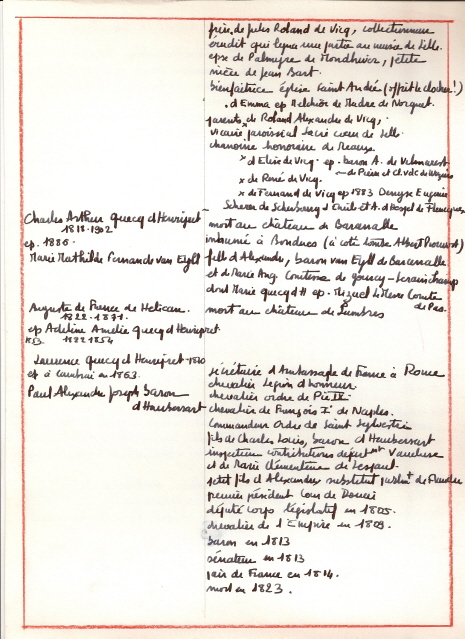 frère de Jules Roland de Vicq, collectionneur
érudit qui légua une partie au musée de Lille.
epx de Palmyre de Mondhuir, petite
nièce de Jean Bart.
bienfaitrice église Saint André (offrit le clocher !)
. d Emma ep Melchior de Madre de Norguet.
parents de Roland Alexandre de Vicq,
vicaire paroissial Sacré coeur de Lille.
chanoine honoraire de Meaux.
x d Elise de Vicq ep. baron A. de Vilmarest
x de René de Vicq.
x de Fernand de Vicq ep 1883 Denyse Eugénie
Charles Arthur Quecq d Henripret
1818-1902
ep. 1886.
Marie Mathilde Fernande van Eyll
mort au château de Baranalle
inhumé à Bondues (à côté tombe Albert Prouvost)
fille d Alexandre, baron van Eyll de Baranalle
et de Marie Ang. Comtesse de
dont Marie Quecq d H ep. Miguel Comte
de Pas.
Auguste de France de Helican.
1822-1891.
ep Adeline Amelie Quecq d Henripret
1853 1822 1854
mort au château de Lumbres
Laurence Quecq d Henripret
ep à Cambrai en 1863.
Paul Alexandre Joseph baron
d Haubersart
secrétaire d Ambassade de France à Rome
chevalier Légion d honneur
chevalier ordre de Pie IX
chevalier de François I de Naples.
Commandeur Ordre de Saint Sylvestre
fils de Charles Louis, baron d Haubersart
inspecteur contributions départmt Vaucluse
et de Marie Clémentine de Lespaul.
petit fils d Alexandre substitut parlmt de Flandre
premier président Cour de Douai
député corps législatif en 1805.
chevalier de l Empire en 1809.
baron en 1813
sénateur en 1813
pair de France en 1814.
mort en 1823.